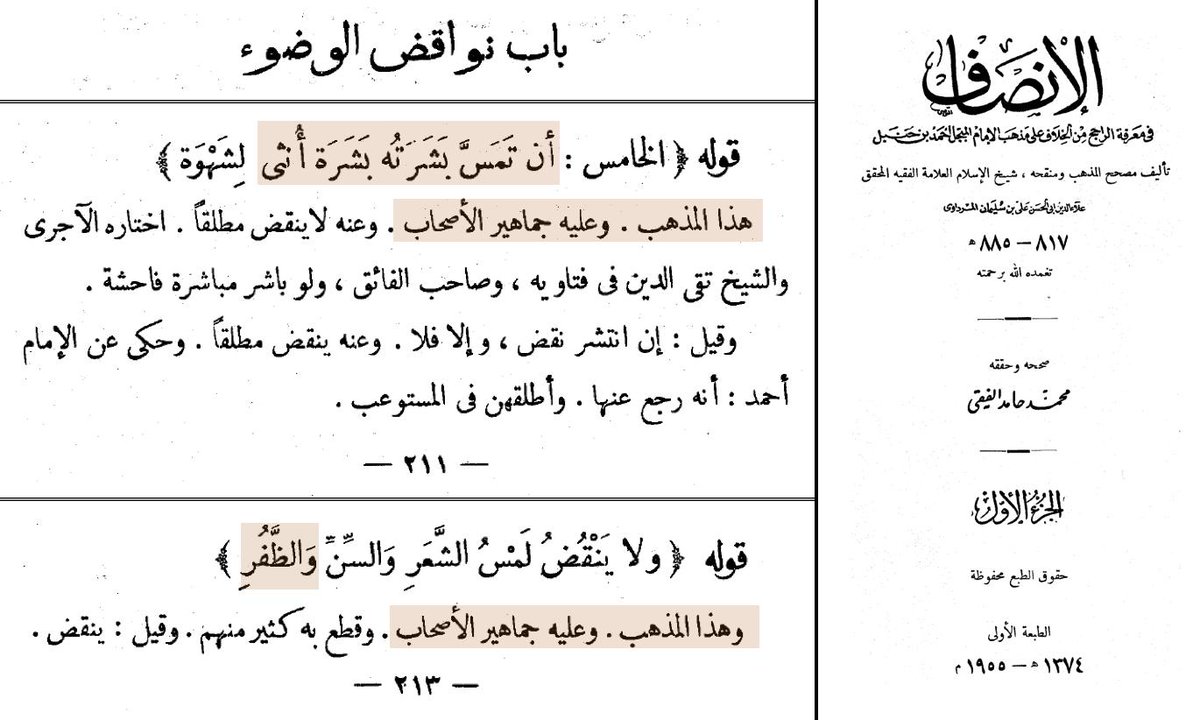 باب نواقض الوضوء
قوله ﴿ الخامس : أن تَمَسَّ بَشَرَتُه بَشَرَة أُنثى لِشَهْوَة ﴾
هذا المذهب . وعليه جماهير الأصحاب . وعنه لاينقض مطلقاً . اختاره الآجرى
والشيخ تقى الدين فى فتاويه ، وصاحب الفائق ، ولو باشر مباشرة فاحشة .
وقيل : إن انتشر نقض ، و إلا فلا . وعنه ينقض مطلقاً . وحكى عن الإمام
أحمد : أنه رجع عنها . وأطلقهن فى المستوعب .
— ٢١١ —
قوله ﴿ ولا يَنْقُضُ لَمْسُ الشَّعَرِ وَالسِّنِّ وَالظُّفُرِ ﴾
وهذا المذهب . وعليه جماهير الأصحاب . وقطع به كثير منهم . وقيل : ينقض .
— ٢١٣ —
الإنصاف
فى معرفة الراجح من الخلاف على مذهب الإمام المبجل أحمد بن حنبل
تأليف مصحح المذهب ومنقحه ، شيخ الإسلام العلامة الفقيه المحقق
علاء الدين أبى الحسن على بن سليمان المرداوى
٨١٧ — ٨٨٥ ه
تغمده الله برحمته
صححه وحققه
محمد حامد الفقى
الجزء الأول
حقوق الطبع محفوظة
الطبعة الأولى
١٣٧٤ ه — ١٩٥٥ م